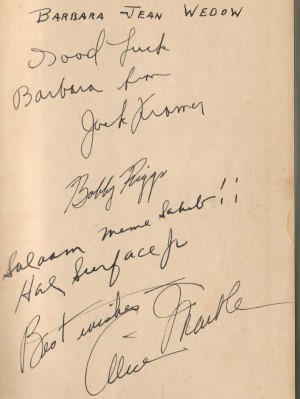 BARBARA JEAN WEDOW
Good Luck
Barbara Ann
Jack Kramer
Bobby Riggs
Salaam meme Sahib!!
Hal Surface Jr
Best wishes
Alice Marble